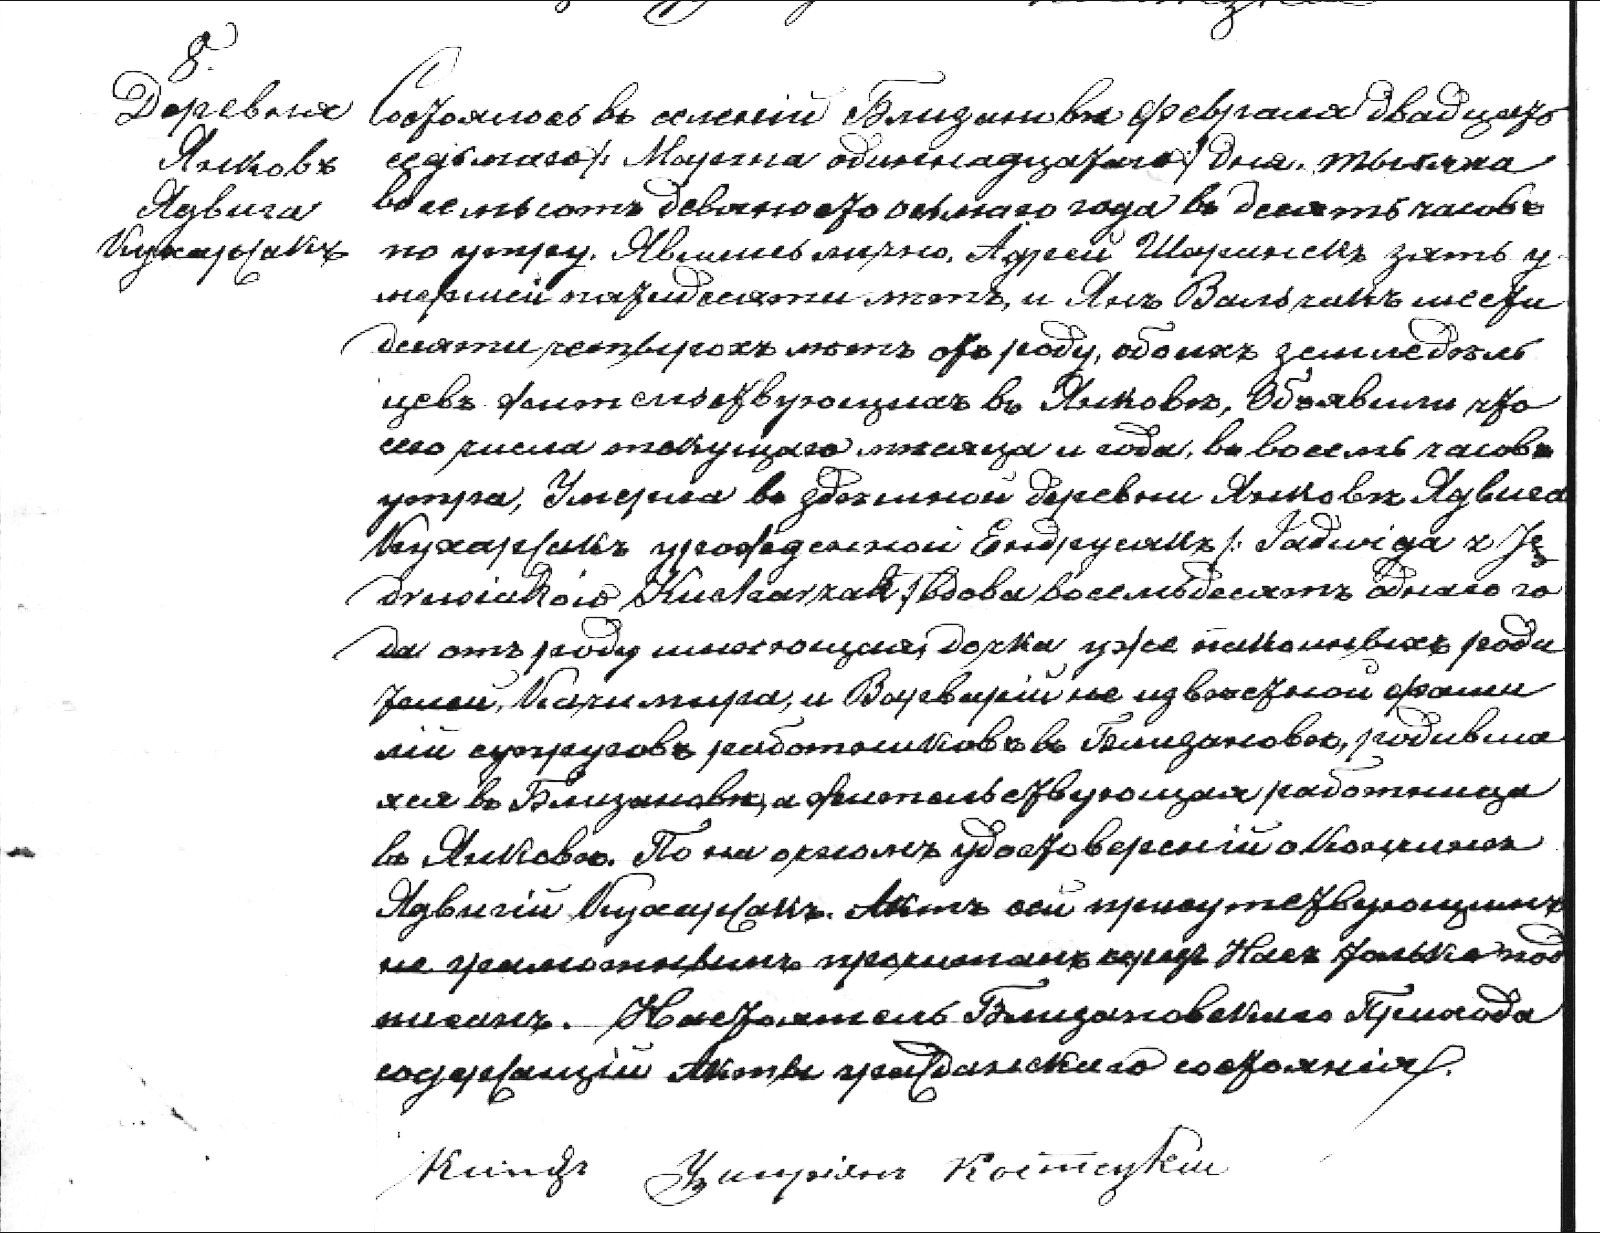 8.
Деревня
Янковъ
Ядвига
Кухаржакъ
Состоялось въ селеній Близановѣ Февраля двадцать
седьмаго /: Марта одиннадцатаго :/ дня, тысяча
восемьсотъ девяносто осьмаго года въ десять часовъ
по утру. Явились лично, Адрей Шаринскъ зять у-
мершей пятидесяти лѣтъ, и Янъ Вальчакъ шести
десяти четырохъ лѣтъ отъ роду, обоихъ земледѣль
цевъ жительствующихъ въ Янковѣ, Объявили что
сего числа текущаго мѣсяца и года, въ восемь часовъ
утра, Умерла въ здѣшной деревни Янковѣ Ядвига
Кухаржакъ урожденной Ендрусякъ /: Jadwiga z Ję
drusiaków Kucharzak :/ вдова восемьдесятъ одного го
да отъ роду имѣющая, дочка уже покойныхъ роди
телей, Казимира, и Варварій не извѣстной фами
лій супруговъ работниковъ въ Близановѣ, родивша
яся въ Близановѣ, а жительствующая работница
въ Янковѣ. По на очномъ удостоверсній о кончинѣ
Ядвигій Кухаржакъ. Актъ сей присутствующимъ
не грамотнымъ прочитанъ Нами только под
писанъ. Настоятель Близановскаго Прихода
содержащій Акты гражданскаго состоянія.
Ксендзъ Циприянъ